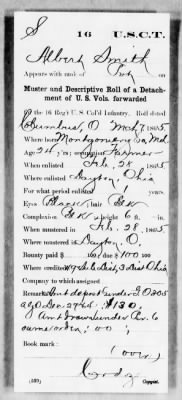 S 16 U.S.C.T.
Albert Smith
Appears with rank of Pvt on
Muster and Descriptive Roll of a Detach-
ment of U. S. Vols. forwarded
for the 16 Reg't U.S. Col'd Infantry. Roll dated
Columbus, O. Mch 7, 1865.
Where born Montgomery Co, Md
Age 24 y'rs; occupation Farmer
When enlisted Feb. 28, 1865.
Where enlisted Dayton, Ohio
For what period enlisted 1 years.
Eyes Black; hair Dk
Complexion Dk; height 6 ft. in.
When mustered in Feb. 28, 1865.
Where mustered in Dayton, O.
Bounty paid $ 100; due $ 100 100
Where credited 3 Dist Ohio
Company to which assigned
Remarks: Amt deposited under G O 305
A G O Dec 27 64. $130.
Amt drawn under Par. 6
same order; 00
Book mark:
(over)
Copyist.